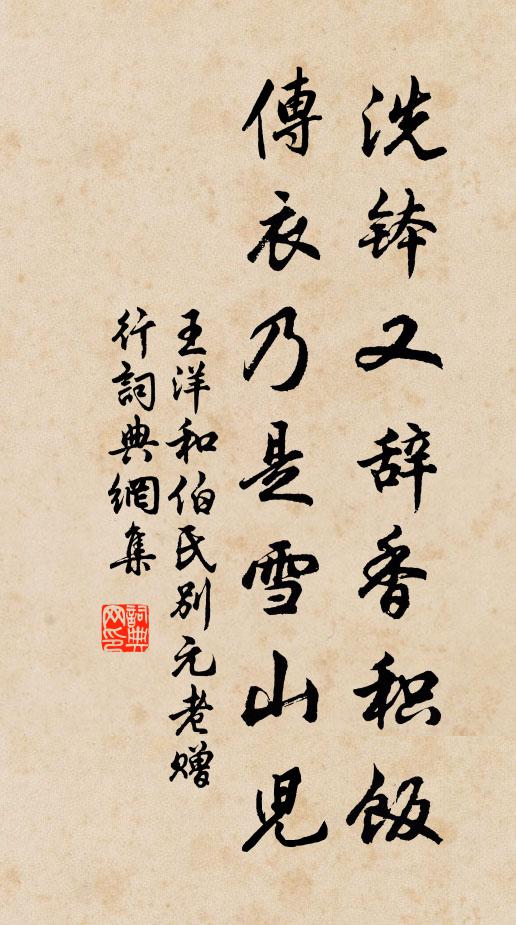 洗钵又辞香积飯
傳衣乃是雪山児
王洋和伯氏别元老赠
行詞典網集
詞典網印